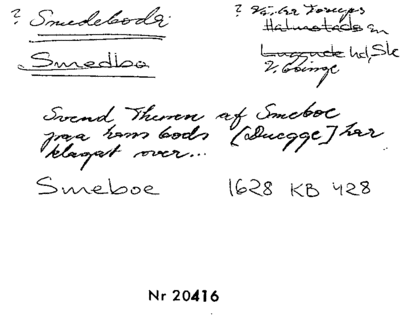 ? Smedeboda
? Vinkr Torups
Smedbo
Halmstads sn
Luggude hd, Sk
V. Göinge
Svend Thuren af Smeboe
paa hans bods [Duegge] har
klagat over...
Smeboe 1628 KB 428
Nr 20416